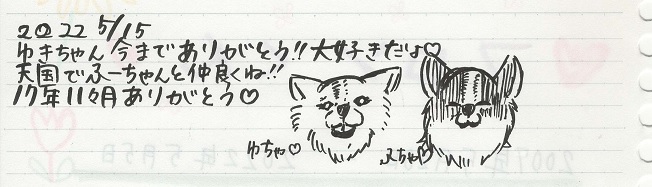 2022 5/15
ゆきちゃん今までありがとう!!大好きだよ♡
天国でふーちゃんと仲良くね!!
17年11ヶ月ありがとう♡
ゆちゃ♡
ふちゃ♡